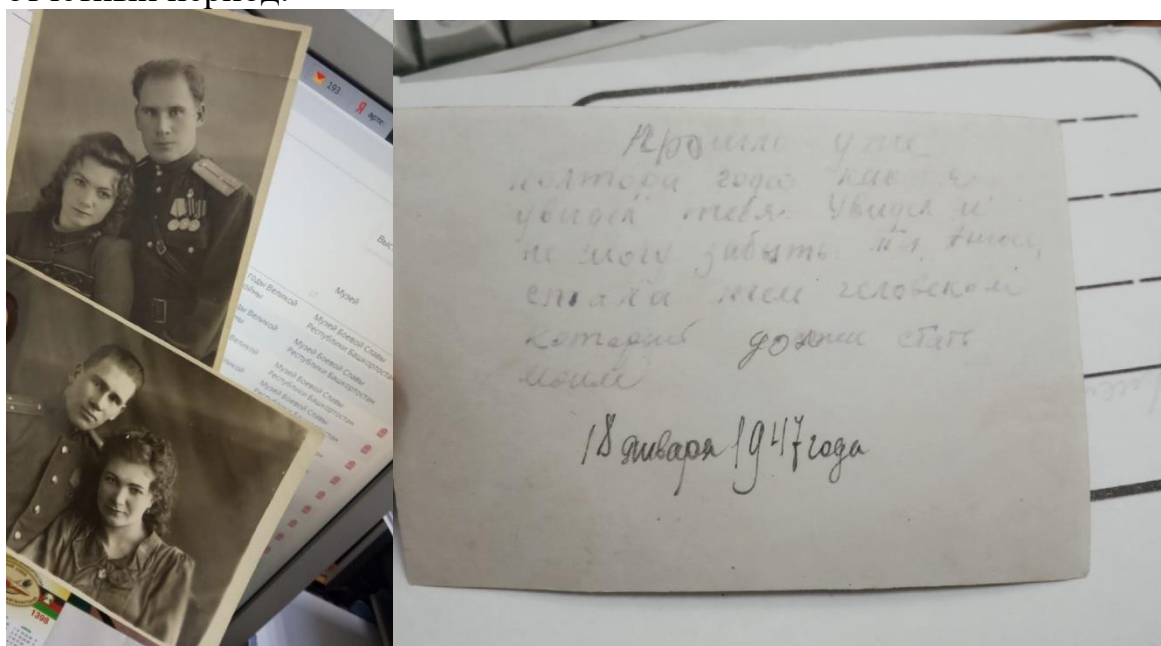 193
Я арте
Музей
годы Великой
Музей Боевой Славы
Республики Башкортостан
Музей Боевой Славы
Республики Башкортостан
Музей Боевой Славы
Республики Башкортостан
1398
Прошло уже
полтора года как я
увидел тебя. Увидел и
не могу забыть.
стала тем человеком
который должен стать
моим
18 января 1947 года